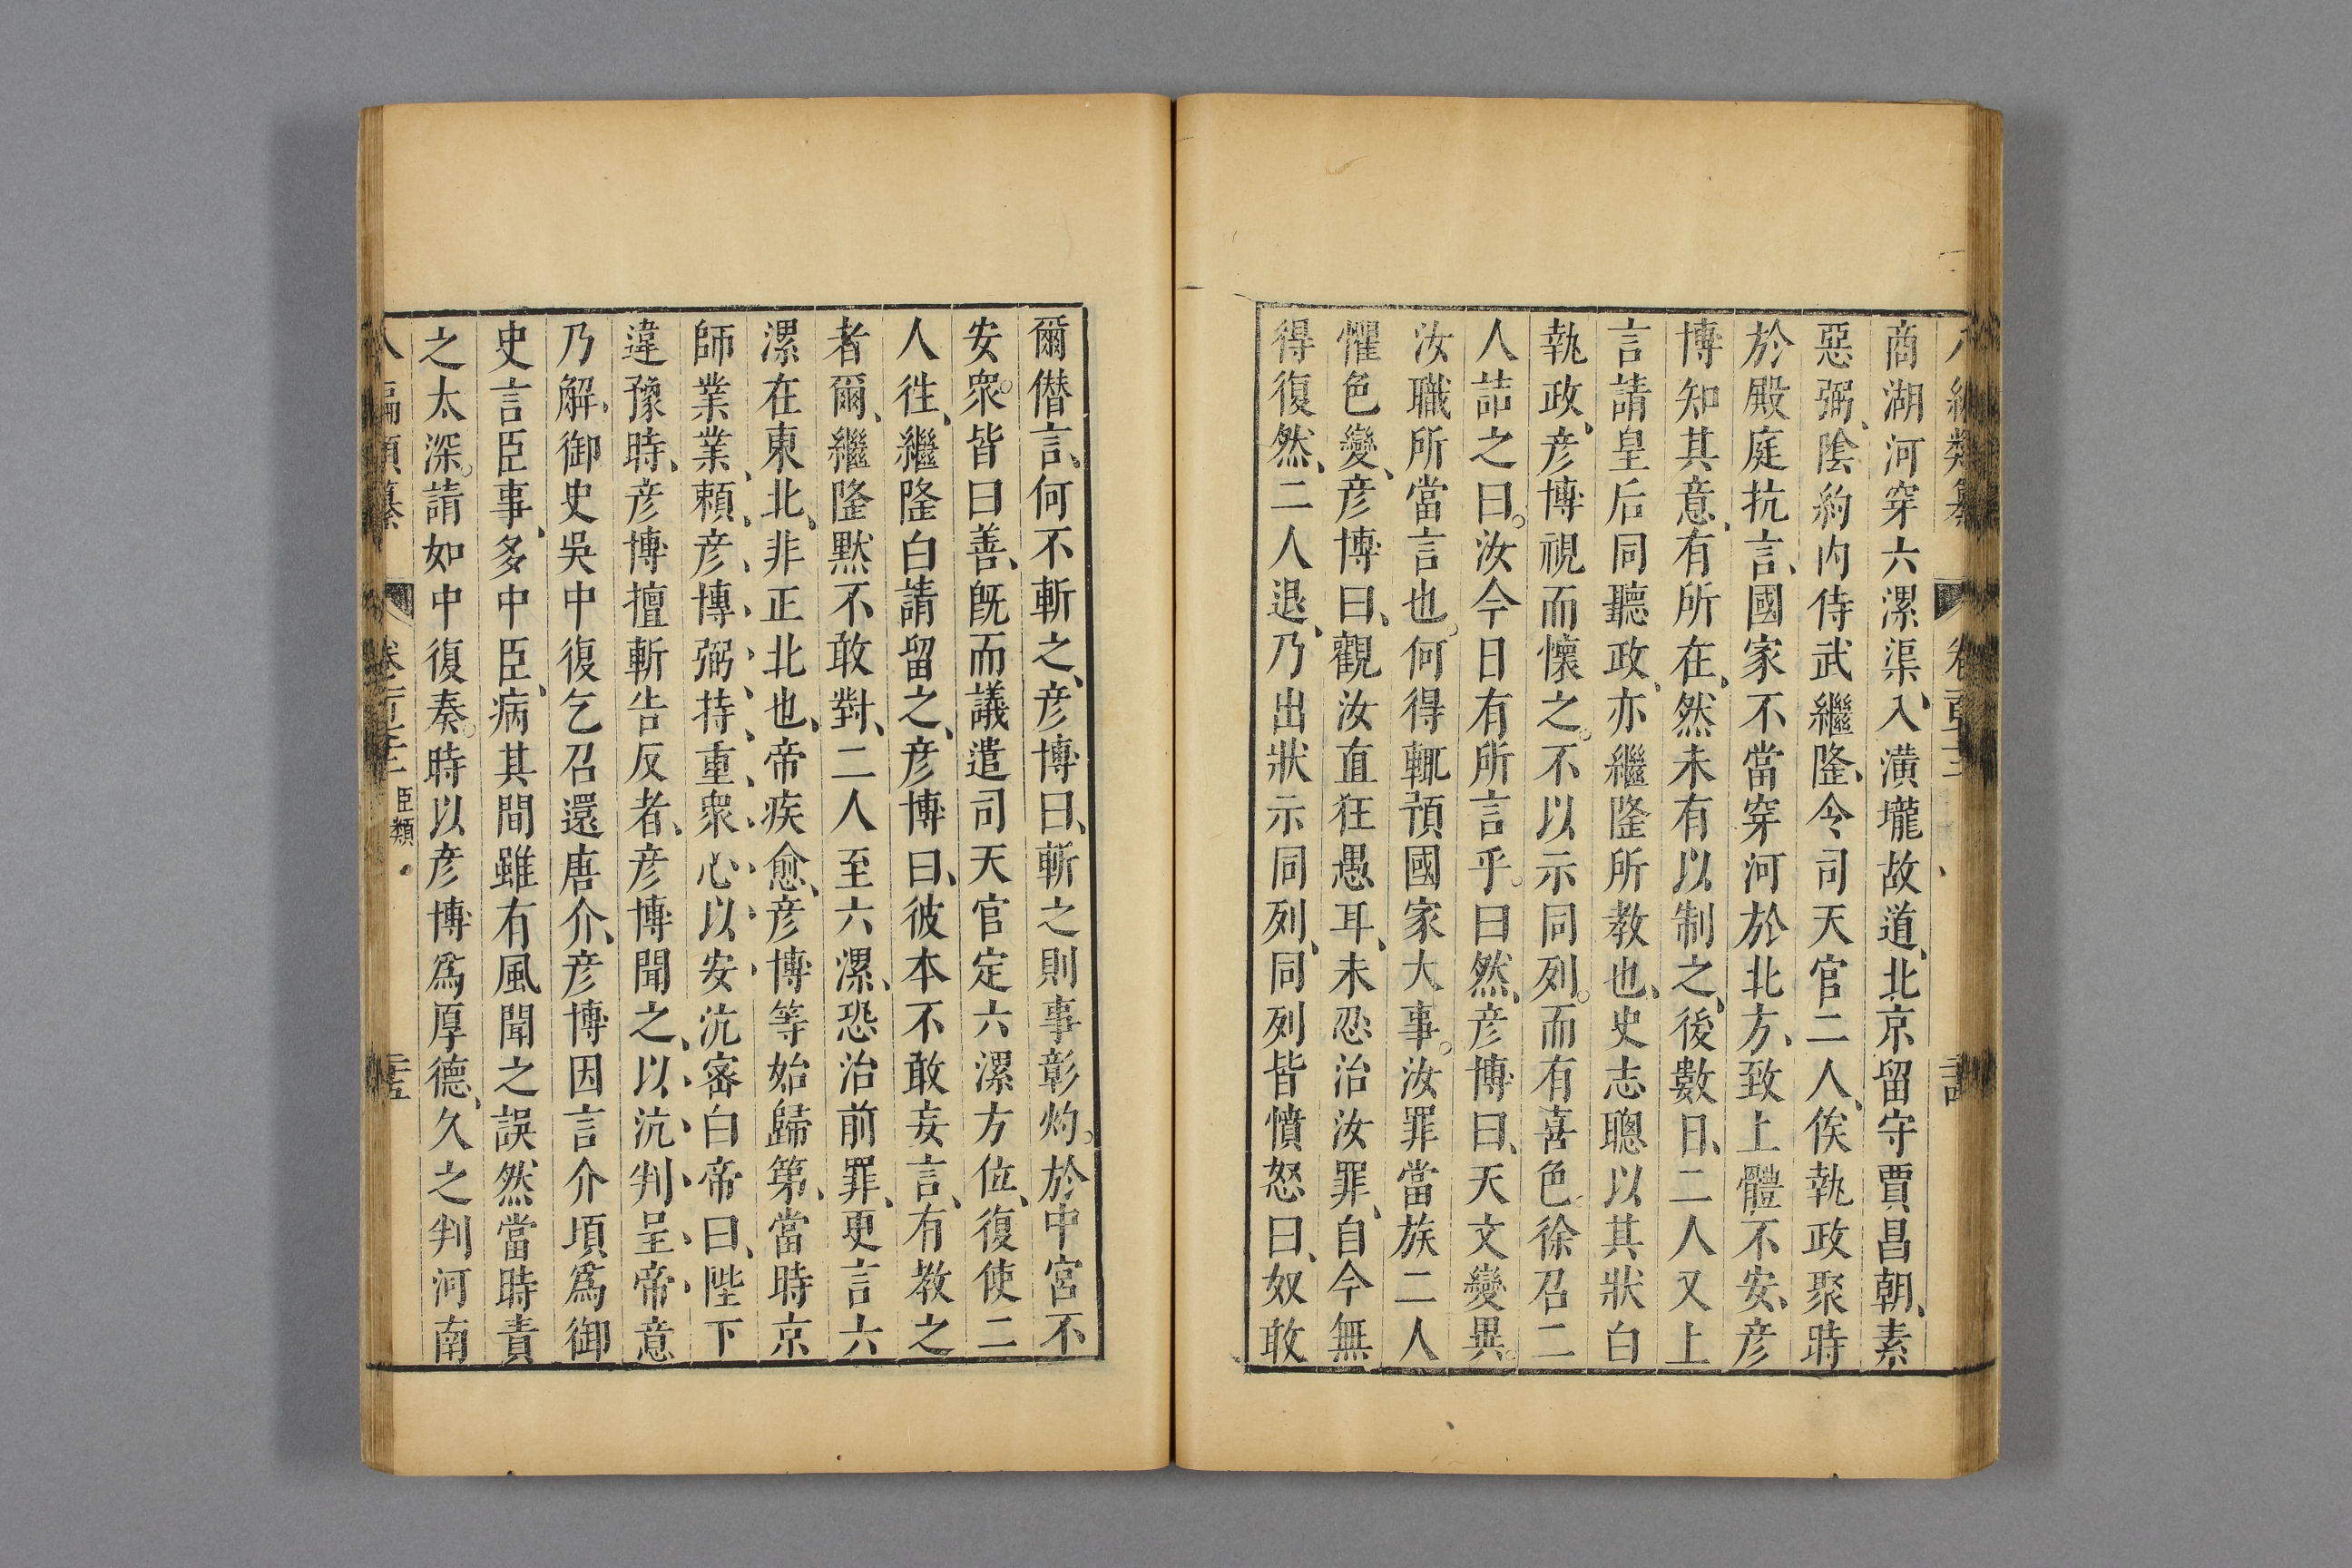 商湖河穿六漯渠、入潢壠故道、北京留守賈昌朝、素
惡弼、隂約内侍武繼隆、令司天官二人、俟執政聚時
於殿庭抗言、國家不當穿河於北方、致上體不安、彦
博知其意、有所在、然未有以制之、後數日、二人又上
言請皇后同聽政、亦繼隆所教也、史志聰以其狀白
執政、彦博視而懷之。不以示同列。而有喜色。徐召二
人詰之曰。汝今日有所言乎。曰然、彦博曰、天文變異。
汝職所當言也。何得輒預國家大事。汝罪當族二人
懼色變、彦博曰、觀汝直狂愚耳、未忍治汝罪、自今無
得復然、二人退、乃出狀示同列、同列皆憤怒曰、奴敢
爾僭言、何不斬之、彦博曰、斬之則事彰灼。於中宮不
安衆。皆曰善、旣而議遣司天官定六漯方位、復使二
人徃、繼隆白請留之、彦博曰、彼本不敢妄言、有教之
者爾、繼隆黙不敢對、二人至六漯、恐治前罪、更言六
漯在東北、非正北也、帝疾愈、彦博等始歸第、當時京
師業業、頼、彦、博、弼、持、重、衆、心、以、安、沆審白帝曰、陛下
違豫時、彦博擅斬告反者、彦博聞之、以、沆、判、呈、帝、意
乃解、御史吳中復乞召還唐介、彦博因言介頃爲御
史言臣事、多中臣、病其間雖有風聞之誤然當時責
之太深。請如中復奏。時以彦博爲厚德、久之判河南
臣類